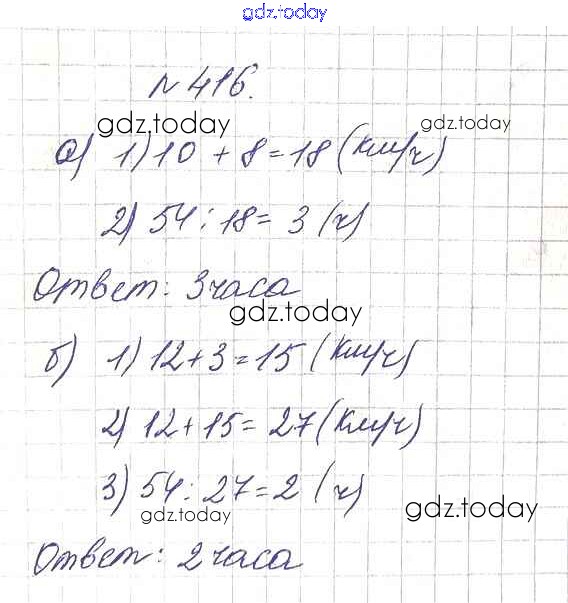 gdz.today
№ 416.
gdz.today gdz.today
а) 1) 10 + 8 = 18 (км/ч)
2) 54 : 18 = 3 (ч)
Ответ: 3 часа
gdz.today
б) 1) 12 + 3 = 15 (км/ч)
2) 12 + 15 = 27 (км/ч)
3) 54 : 27 = 2 (ч)
gdz.today gdz.today
Ответ: 2 часа